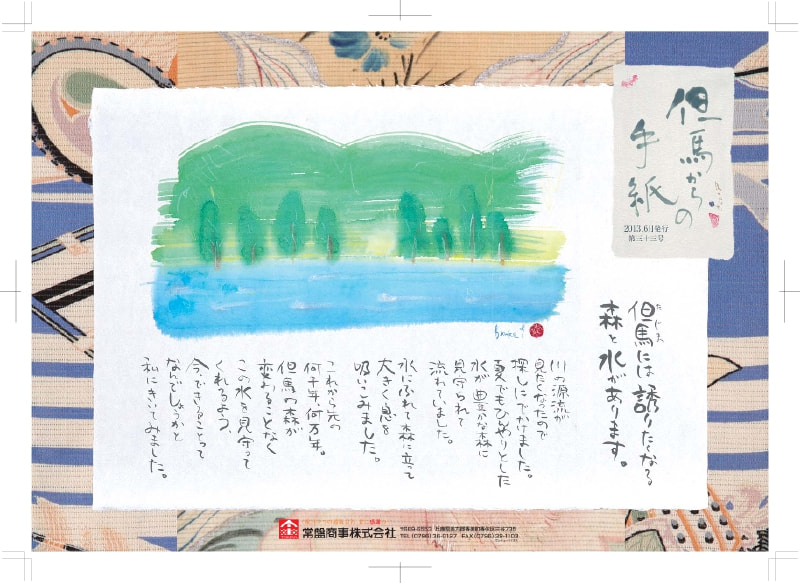 但馬からの
手紙
2013.6月発行
第三十三号
たじま
但馬には誇りたくなる。
森と水があります。
川の源流が
見たくなったので
探しにでかけました。
夏でもひんやりとした
水が豊かな森に
見守られて
流れていました。
水にふれて森に立って
大きく息を
吸いこみました。
これから先の
何千年、何万年。
但馬の森が
変わることなく
この水を見守って
くれるよう
今できることって
なんでしょうかと
私にきいてみました。
常盤商事株式会社